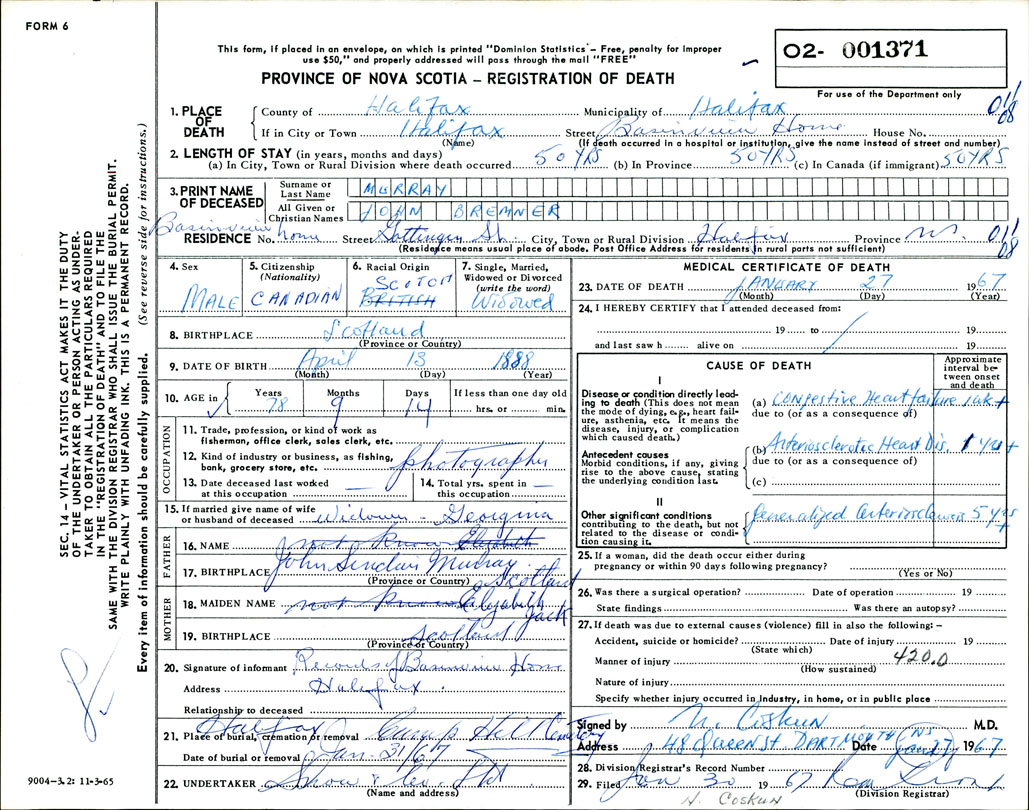 FORM 6
This form, if placed in an envelope, on which is printed "Dominion Statistics - Free, penalty for improper
use $50," and properly addressed will pass through the mail "FREE"
PROVINCE OF NOVA SCOTIA – REGISTRATION OF DEATH
02- 001371
For use of the Department only
1. PLACE OF DEATH
County of Halifax Municipality of Halifax 011 08
If in City or Town Halifax Street Basinview Home House No.
(Name) (If death occurred in a hospital or institution, give the name instead of street and number)
2. LENGTH OF STAY (in years, months and days)
(a) In City, Town or Rural Division where death occurred 50 YRS (b) In Province 50 YRS (c) In Canada (if immigrant) 50 YRS
3. PRINT NAME OF DECEASED
Surname or Last Name MURRAY
All Given or Christian Names JOHN BREMNER
RESIDENCE No. Basinview Home Street Gottingen St. City, Town or Rural Division Halifax Province N.S. 011 08
(Residence means usual place of abode. Post Office Address for residents in rural parts not sufficient)
4. Sex
MALE
5. Citizenship
(Nationality)
CANADIAN
6. Racial Origin
SCOTCH
BRITISH
7. Single, Married,
Widowed or Divorced
(write the word)
Widowed
8. BIRTHPLACE Scotland
(Province or Country)
9. DATE OF BIRTH April 13 1888
(Month) (Day) (Year)
10. AGE in Years 78 Months 9 Days 14 If less than one day old
hrs. or min.
OCCUPATION
11. Trade, profession, or kind of work as
fisherman, office clerk, sales clerk, etc.
12. Kind of industry or business, as fishing,
bank, grocery store, etc. photographer
13. Date deceased last worked
at this occupation
14. Total yrs. spent in
this occupation
15. If married give name of wife
or husband of deceased Widower - Georgina
FATHER
16. NAME not known Elizabeth
John Sinclair Murray
17. BIRTHPLACE Scotland
(Province or Country)
MOTHER
18. MAIDEN NAME not known Elizabeth Jack
19. BIRTHPLACE Scotland
(Province or Country)
20. Signature of informant Records of Basinview Home
Address Halifax
Relationship to deceased
21. Place of burial, cremation or removal Halifax Camp Hill Cemetery
Date of burial or removal Jan. 31/67
22. UNDERTAKER Snow & Co. Ltd
(Name and address)
MEDICAL CERTIFICATE OF DEATH
23. DATE OF DEATH JANUARY 27 1967
(Month) (Day) (Year)
24. I HEREBY CERTIFY that I attended deceased from:
19 to 19
and last saw h alive on 19
CAUSE OF DEATH
Approximate interval between onset and death
I
Disease or condition directly leading to death (This does not mean the mode of dying, e.g., heart failure, asthenia, etc. It means the disease, injury, or complication which caused death.)
(a) Congestive Heart failure 1 wk +
due to (or as a consequence of)
Antecedent causes
Morbid conditions, if any, giving rise to the above cause, stating the underlying condition last.
(b) Arteriosclerotic Heart Dis. 1 yr +
due to (or as a consequence of)
(c)
II
Other significant conditions
contributing to the death, but not related to the disease or condition causing it.
Generalized arteriosclerosis 5 yrs +
25. If a woman, did the death occur either during
pregnancy or within 90 days following pregnancy?
(Yes or No)
26. Was there a surgical operation? Date of operation 19
State findings Was there an autopsy?
27. If death was due to external causes (violence) fill in also the following: –
Accident, suicide or homicide? Date of injury 19
(State which)
Manner of injury 420.0
(How sustained)
Nature of injury
Specify whether injury occurred in industry, in home, or in public place
Signed by N. Coskun M.D.
Address 48 QUEEN ST DARTMOUTH NS Date Jan 27 1967
28. Division Registrar's Record Number
29. Filed Jan 30 1967
(Division Registrar)
N. COSKUN
SEC. 14 – VITAL STATISTICS ACT MAKES IT THE DUTY
OF THE UNDERTAKER OR PERSON ACTING AS UNDER-
TAKER TO OBTAIN ALL THE PARTICULARS REQUIRED
IN THE "REGISTRATION OF DEATH" AND TO FILE THE
SAME WITH THE DIVISION REGISTRAR WHO SHALL ISSUE THE BURIAL PERMIT.
WRITE PLAINLY WITH UNFADING INK. THIS IS A PERMANENT RECORD.
Every item of information should be carefully supplied. (See reverse side for instructions.)
9004-3.2: 11-3-65